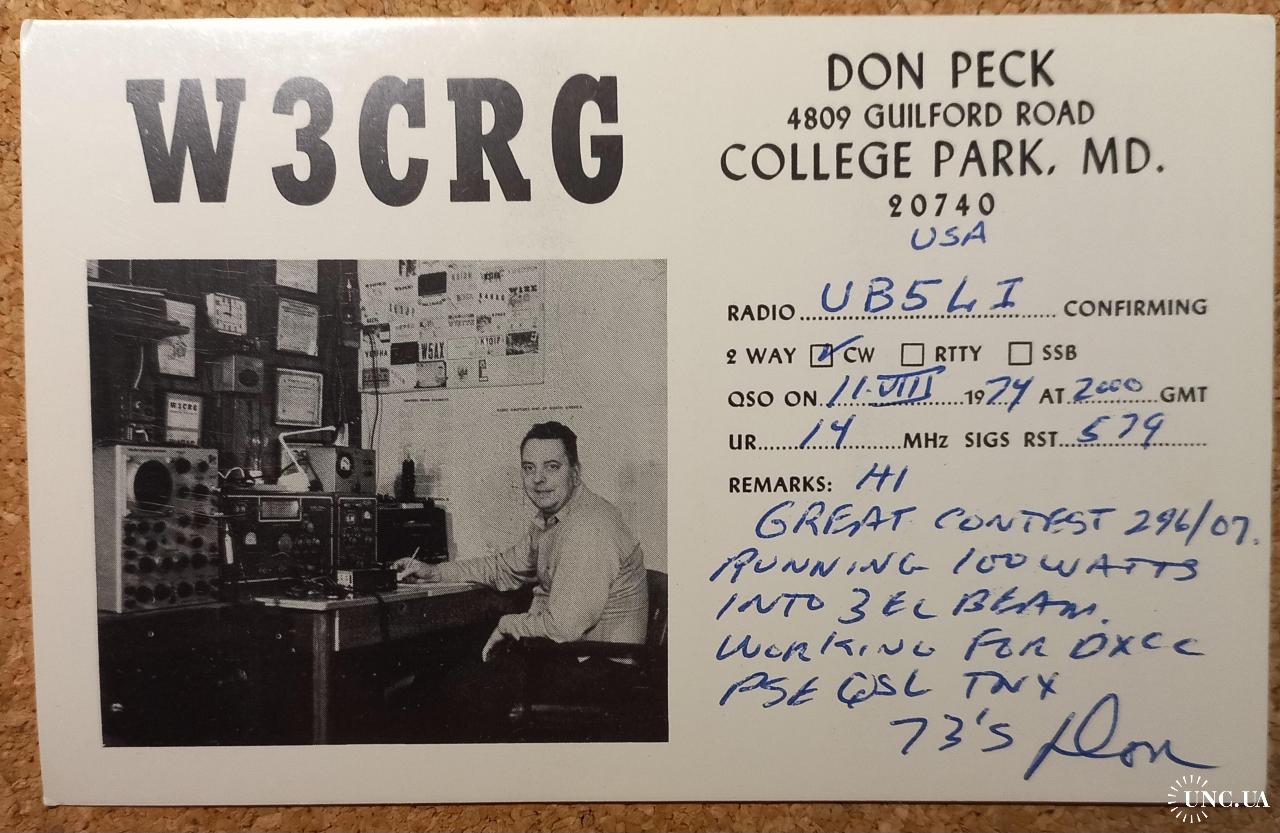 W3CRG
DON PECK
4809 GUILFORD ROAD
COLLEGE PARK, MD.
20740
USA
RADIO UB5LI CONFIRMING
2 WAY ☑ CW ☐ RTTY ☐ SSB
QSO ON 11·VIII 1974 AT 2000 GMT
UR 14 MHz SIGS RST 579
REMARKS: HI
GREAT CONTEST 296/07.
RUNNING 100 WATTS
INTO 3 EL BEAM.
WORKING FOR DXCC
PSE QSL TNX
73'S Don
W5AX
W3CRG
UNC.UA